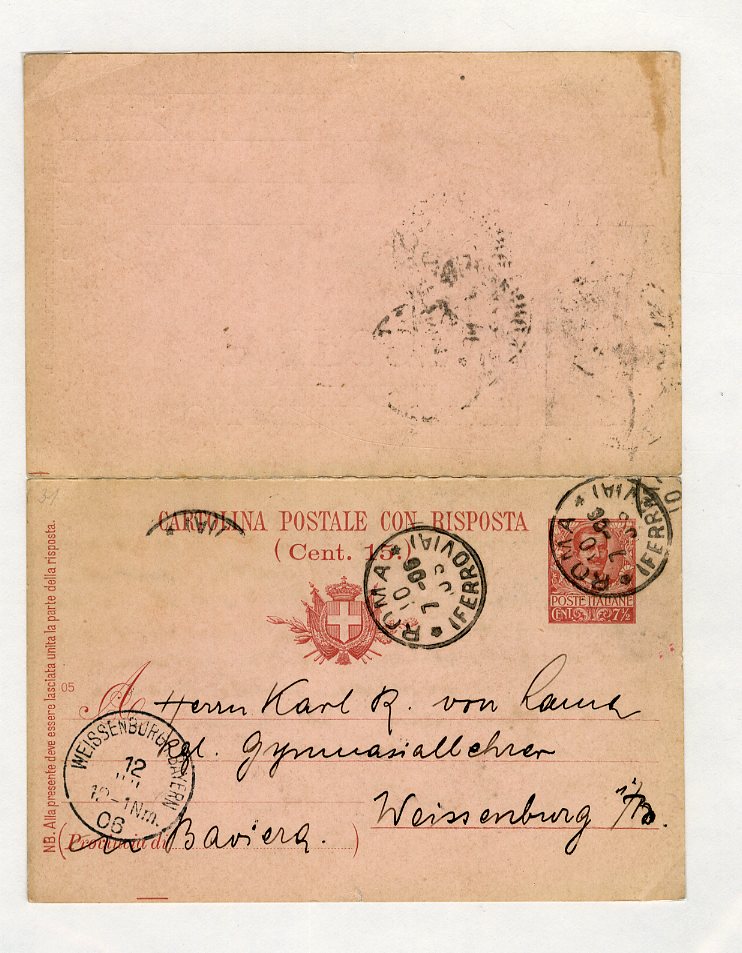 CARTOLINA POSTALE CON RISPOSTA
(Cent. 15.)
ROMA
(FERROVIA)
10
7
06
ROMA
(FERROVIA)
10
7
06
POSTE ITALIANE
CENT. 7½
NB. Alla presente deve essere lasciata unita la parte della risposta.
05
A Herrn Karl R. von Lama
Kgl. Gymnasiallehrer
Weissenburg i/B.
(Provincia di Baviera.)
WEISSENBURG BAYERN
12
12-1Nm.
06